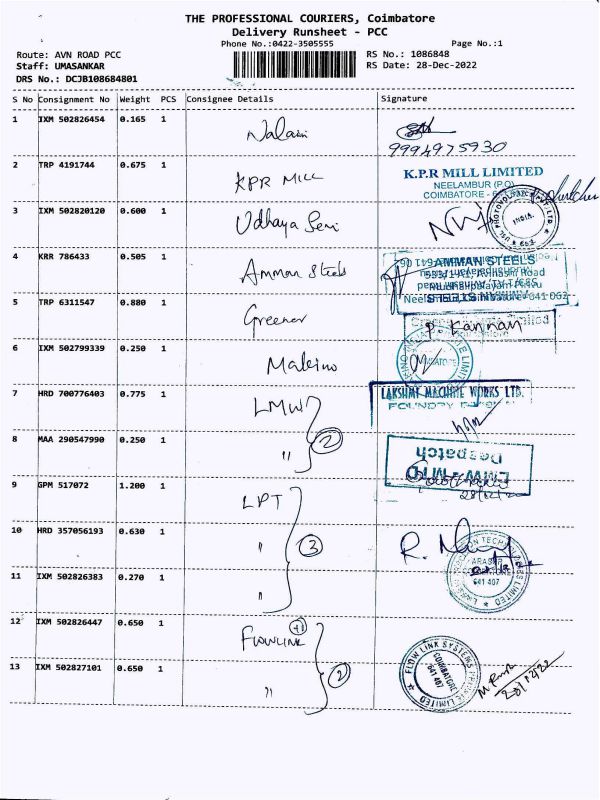 THE PROFESSIONAL COURIERS, Coimbatore
Delivery Runsheet - PCC
Phone No.:0422-3505555
Page No.:1
Route: AVN ROAD PCC
RS No.: 1086848
Staff: UMASANKAR
RS Date: 28-Dec-2022
DRS No.: DCJB108684801
S No Consignment No Weight PCS Consignee Details Signature
1 IXM 502826454 0.165 1
9994975930
2 TRP 4191744 0.675 1 KPR MILL
K.P.R MILL LIMITED
NEELAMBUR (P.O)
COIMBATORE
3 IXM 502820120 0.600 1 Udhaya Semi
PHOTOVOLTAIC PVT LTD
INDIA
4 KRR 786433 0.505 1 Amman Steels
AMMAN STEELS
Avinashi Road
5 TRP 6311547 0.880 1
P. Kannan
6 IXM 502799339 0.250 1 Makino
7 HRD 700776403 0.775 1 LMW
LAKSHMI MACHINE WORKS LTD.
FOUNDRY DIVISION
8 MAA 290547990 0.250 1 " 2
LMW - MTD
Despatch
9 GPM 517072 1.200 1 LPT
10 HRD 357056193 0.630 1 " 3
ARASUR
641 407
11 IXM 502826383 0.270 1 "
12 IXM 502826447 0.650 1 Flowlink +1
FLOW LINK SYSTEMS PRIVATE LIMITED
COIMBATORE
641 407
13 IXM 502827101 0.650 1 " 2